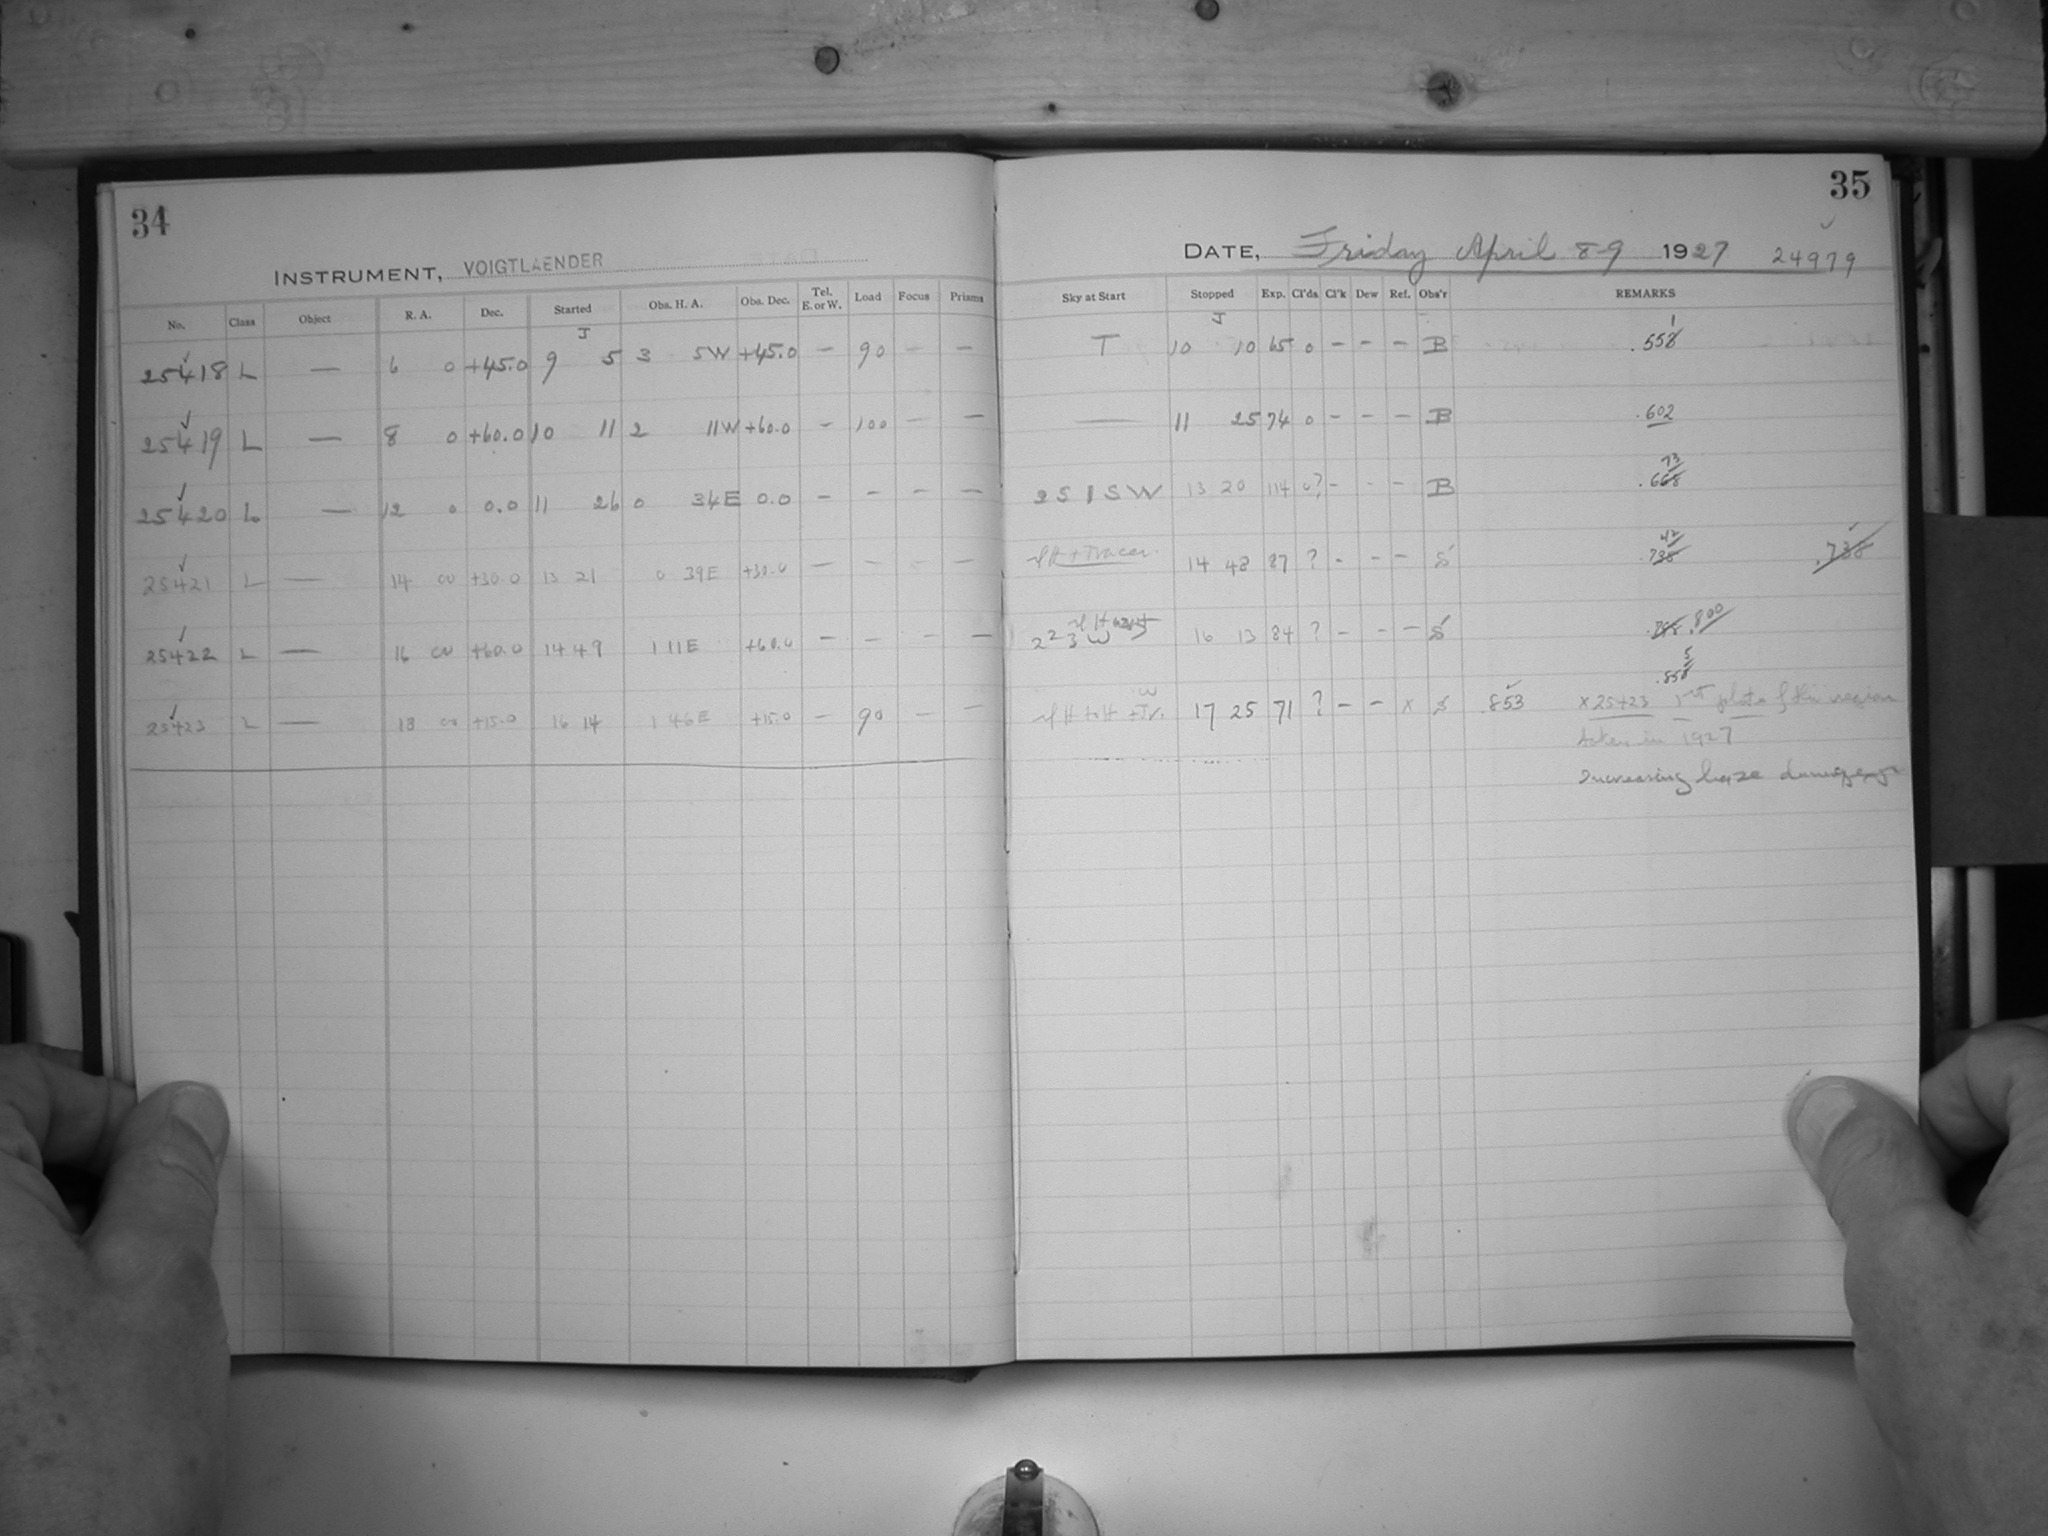 34
35
INSTRUMENT, VOIGTLAENDER
DATE, Friday April 8-9 1927 24979
No. Class Object R. A. Dec. Started Obs. H. A. Obs. Dec. Tel. E. or W. Load Focus Prisms Sky at Start Stopped Exp. Cl'ds Cl'k Dew Ref. Obs'r REMARKS
J J
25418 L — 6 0 +45.0 9 5 3 5W +45.0 — 90 — — T 10 10 65 0 — — — B .558 1
25419 L — 8 0 +60.0 10 11 2 11W +60.0 — 100 — — — 11 25 74 0 — — — B .602
25420 L — 12 0 0.0 11 26 0 34E 0.0 — — — — 2 S 1 S W 13 20 114 0? — — — B .668 73
25421 L — 14 00 +30.0 13 21 0 39E +30.0 — — — — 14 48 87 ? — — — S .738 42 .738
25422 L — 16 00 +60.0 14 49 1 11E +60.0 — — — — 2 2 3 W 16 13 84 ? — — — S .800
.858 5
25423 L — 18 00 +15.0 16 14 1 46E +15.0 — 90 — — 17 25 71 ? — — x S .853 x 25423 1st plate of this region
taken in 1927
Increasing haze